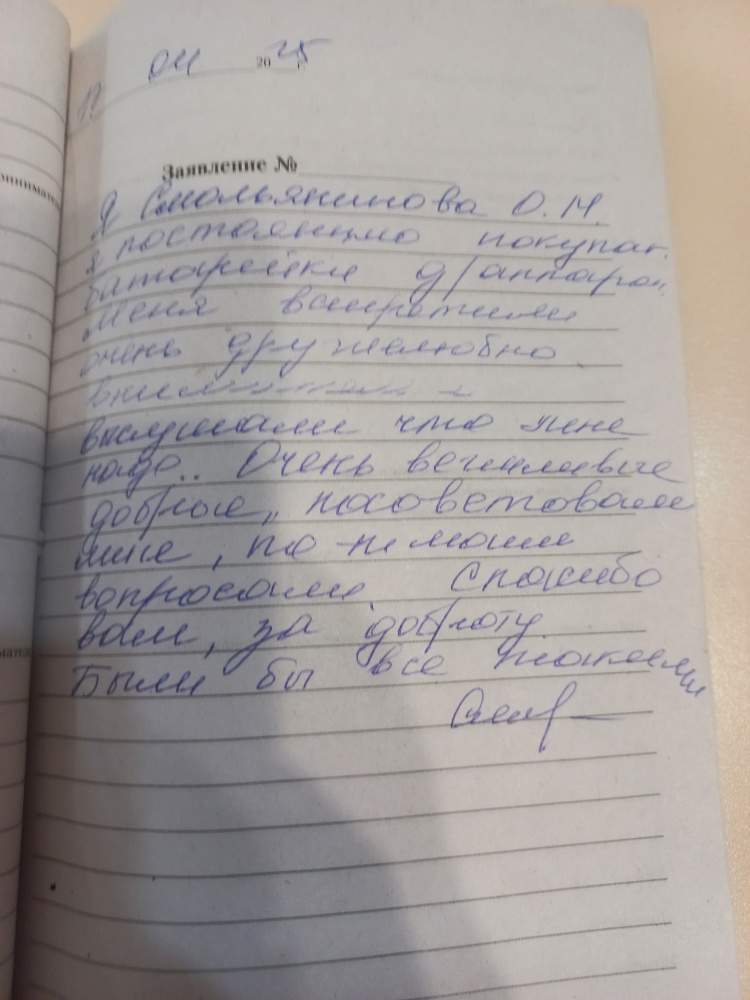 04 2025 г
Заявление №
Я Смольянинова О.Н.
я постоянно покупаю
батарейки д/аппаров.
Меня встретили
очень дружелюбно
выслушали что мне
надо.. Очень вежливые
добрые,, посоветовали
мне, по моим
вопросам спасибо
вам, за доброту
Были бы все такими